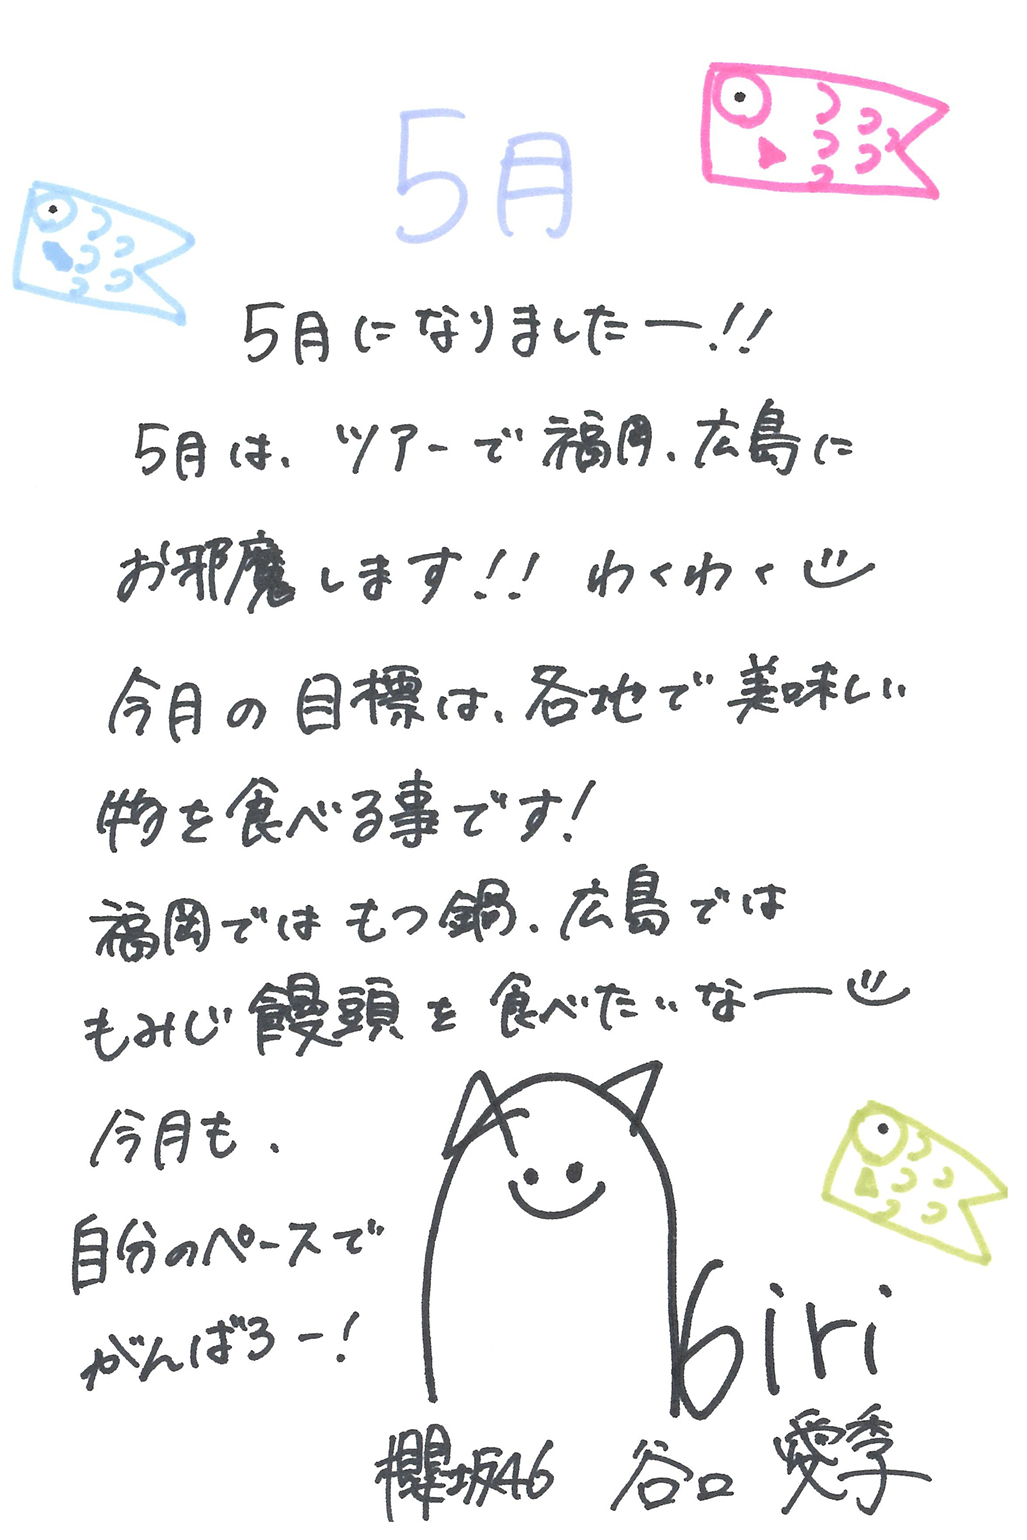 5月
5月になりましたー!!
5月は、ツアーで福岡、広島に
お邪魔します!! わくわく
今月の目標は、各地で美味しい
物を食べる事です!
福岡ではもつ鍋、広島では
もみじ饅頭を食べたいなー
今月も、
自分のペースで
がんばろー!
biri
櫻坂46 谷口 愛季